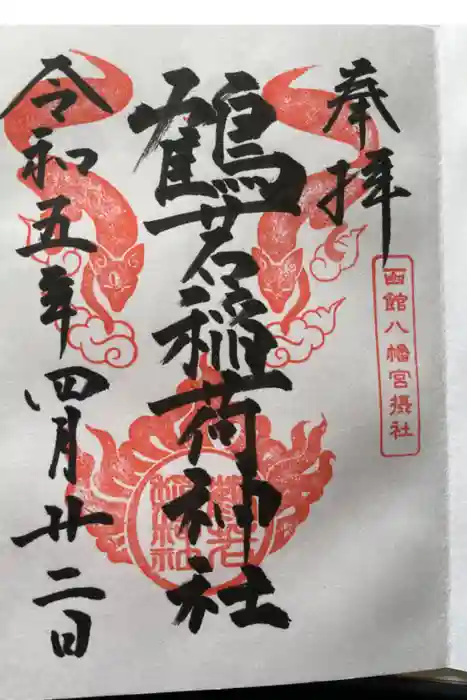 奉拝
函館八幡宮摂社
鶴若稲荷神社
令和五年四月廿二日